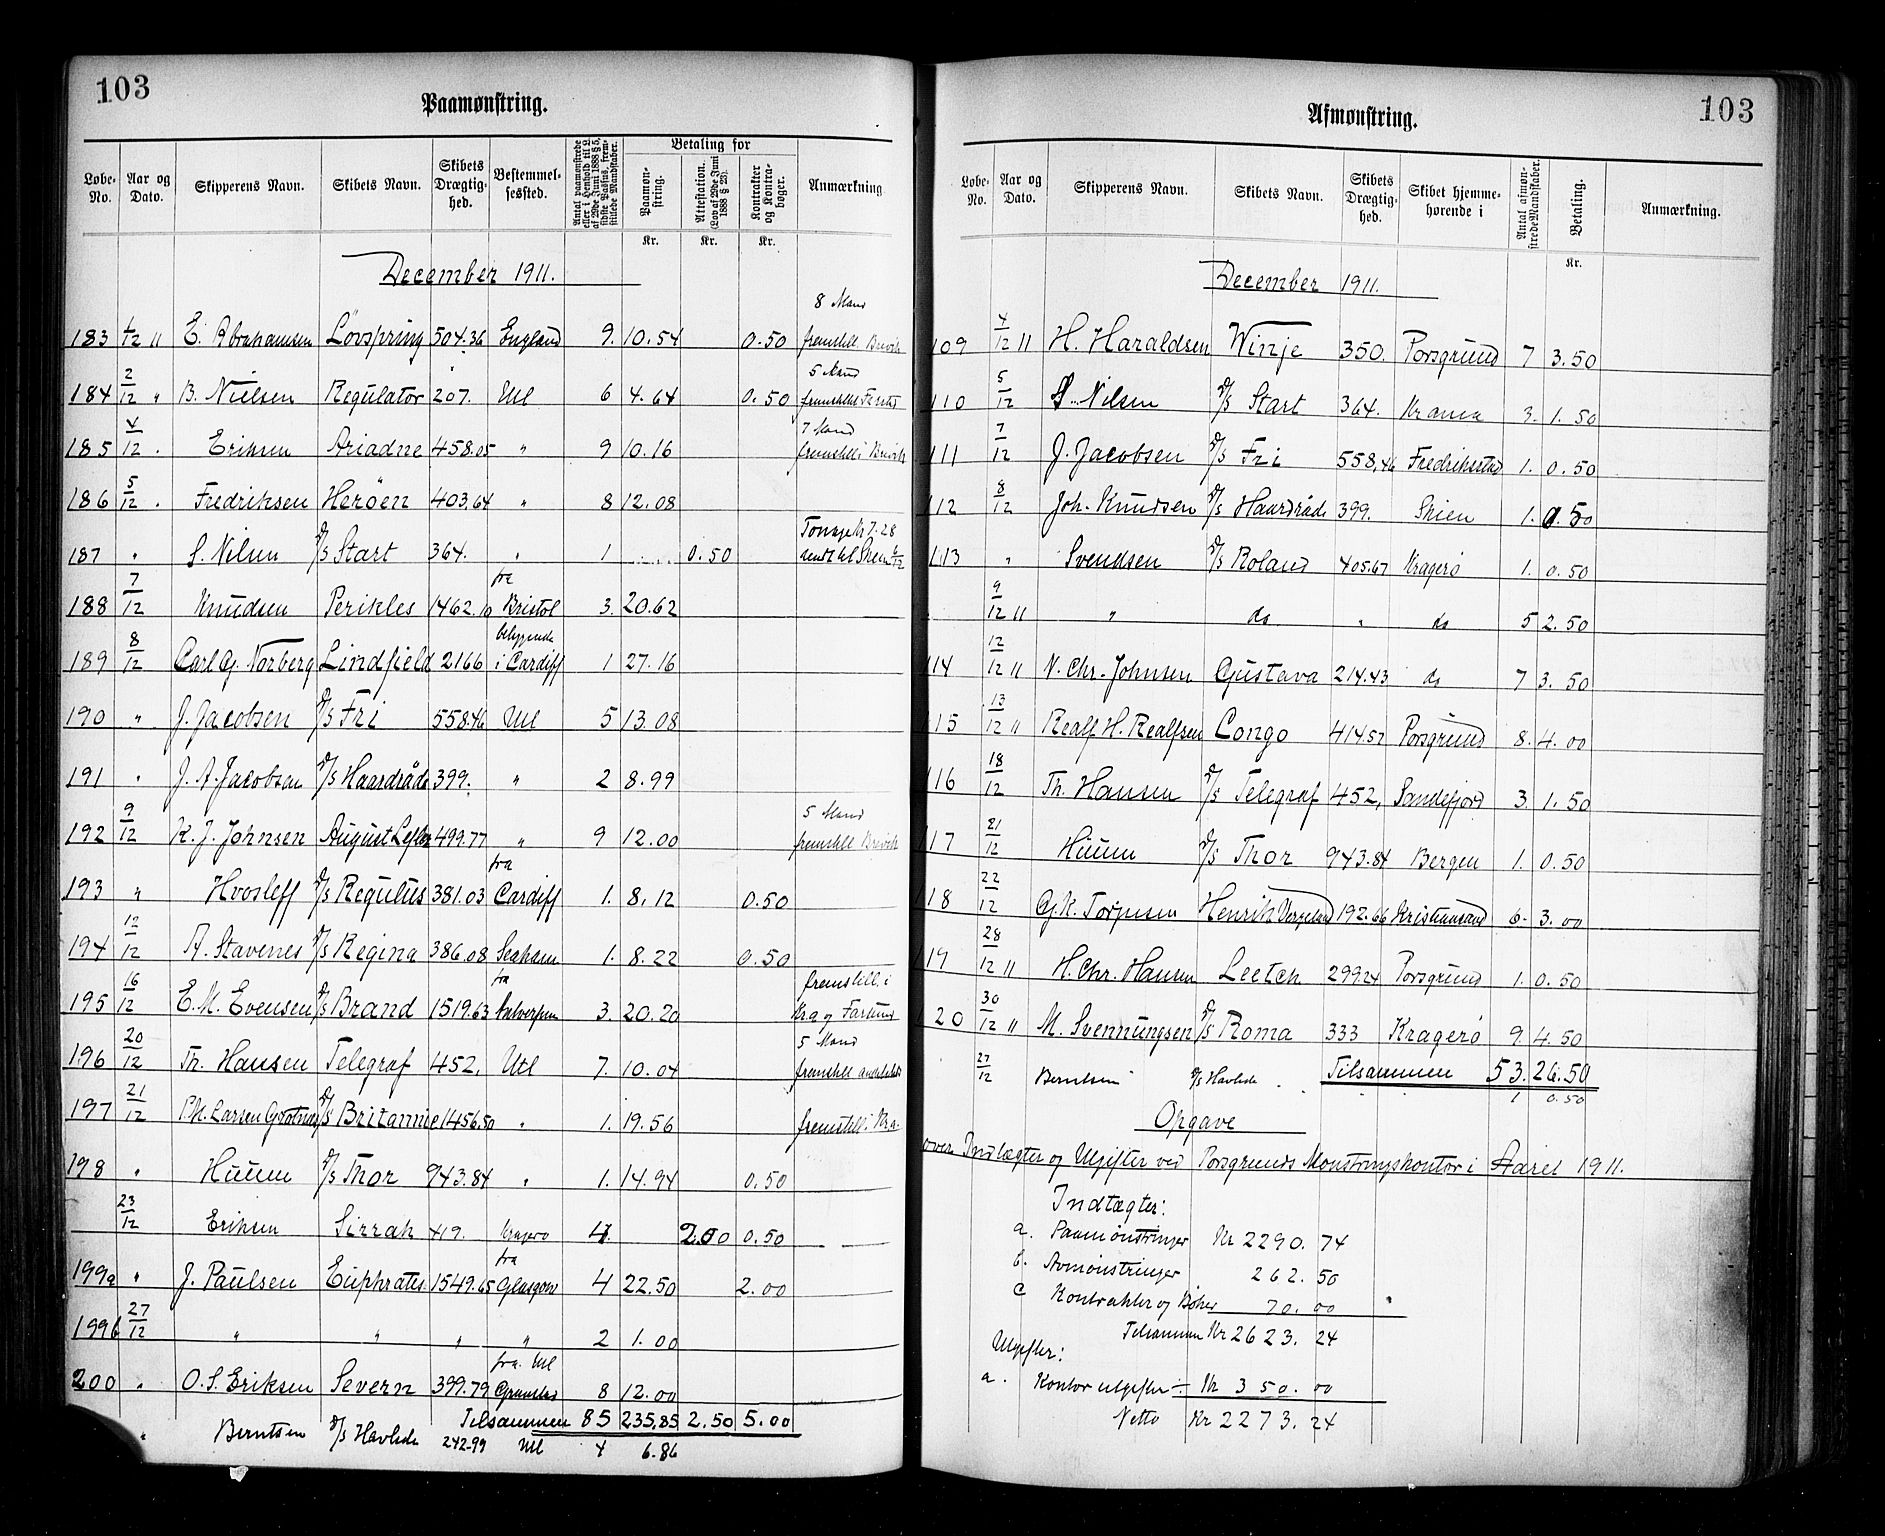 103
Paamønstring.
Løbe-No. Aar og Dato. Skipperens Navn. Skibets Navn. Skibets Drægtighed. Bestemmelsessted. Antal paamønstrede eller i Henhold til L. af 29de Juni 1888 § 5, sidste Passus, fremstillede Mandskaber. Betaling for Paamønstring. Attestation. (Lov af 29de Juni 1888 § 25). Kontrakter og Kontrabøger. Anmærkning
Kr. Kr. Kr.
December 1911.
8 Mand
183 1/12 11 E. Abrahamsen Lövspring 504.36 England 9. 10.54 0.50 fremstill. Brevik
5 Mand
184 2/12 " B. Nielsen Regulator 207. Utl 6 4.64 0.50 fremstillet
7 Mand
185 4/12 . Eriksen Ariadne 458.05 " 9 10.16 fremstill i Brevik
186 5/12 . Fredriksen Heröen 403.64 " 8 12.08
187 " S. Nilsen D/S Start 364. " 1 0.50 Tonnage Kr 7.28 sendt til Skien 6/12
188 7/12 Knudsen Perikles 1462.10 fra Bristol 3. 20.62
189 8/12 Carl G. Norberg Lindfield 2166 beliggende i Cardiff 1 27.16
190 " J. Jacobsen D/S Fri 558.46 Utl 5 13.08
191 " J. A. Jacobsen D/S Haardråde 399. " 2 8.99
5 Mand
192 9/12 K. J. Johnsen August Leffler 499.77 " 9 12.00 fremstill Brevik
193 " Hvosleff D/S Regulus 381.03 fra Cardiff 1. 8.12 0.50
194 12/12 A. Stavenes D/S Regina 386.08 Seaham 1. 8.22 0.50
195 16/12 E. M. Evensen D/S Brand 1519.63 fra Antwerpen 3. 20.20 fremstill. i Kra og Farsund
5 Mand
196 20/12 Th. Hansen Telegraf 452. Utl 7. 10.04 fremstill
197 21/12 Larsen D/S Britannie 1456.50 " 1. 19.56 fremstill i Kra.
198 " Huun D/S Thor 943.84 " 1. 14.94 0.50
23/12 Eriksen Sirrah 419. Kragerø 4. 2.00 0.50
199a " J. Paulsen Euphrates 1549.65 fra Glasgow 4 22.50 2.00
199b 27/12 " " " " 2 1.00
200 " O. S. Eriksen Severn 399.79 fra Utl Grimstad 8 12.00
Tilsammen 85 235.85 2.50 5.00
" Berntsen D/S Havlide 242.99 Utl 4 6.86
103
Afmønstring.
Løbe-No. Aar og Dato. Skipperens Navn. Skibets Navn. Skibets Drægtighed. Skibet hjemmehørende i Antal afmønstrede Mandskaber. Betaling. Anmærkning.
Kr.
December 1911.
109 4/12 11 H. Haraldsen Winje 350. Porsgrund 7 3.50
110 5/12 S. Nilsen D/S Start 364. Krania 3. 1.50
111 7/12 J. Jacobsen D/S Fri 558,46 Fredrikstad 1. 0.50
112 8/12 Joh. Knudsen D/S Haardråde 399. Skien 1. 0.50
113 " Svendsen D/S Roland 405.67 Kragerø 1. 0.50
9/12 11 " do " do 5 2.50
114 12/12 11 N. Chr. Johnsen Gustava 214.43 do 7 3.50
115 13/12 11 Realf H. Realfsen Congo 414.57 Porsgrund 8. 4.00
116 18/12 Th. Hansen D/S Telegraf 452, Sandefjord 3. 1.50
117 21/12 Huun D/S Thor 943.84 Bergen 1. 0.50
118 22/12 G. K. Torjusen Henrik Vergeland 192.66 Kristiansand 6. 3.00
119 28/12 11 H. Chr. Hansen Leetch 299.24 Porsgrund 1. 0.50
120 30/12 11 M. Svennungsen D/S Roma 333 Kragerø 9. 4.50
Tilsammen 53. 26.50
27/12 Berntsen D/S Havlide 1 0.50
Opgave
over Indtægter og Utgifter ved Porsgrunds Mønstringskontor i Aaret 1911.
Indtægter:
a. Paamönstringer Kr 2290. 74
b. Avmönstringer 262. 50
c Kontrakter og Bøker 70. 00
Tilsammen Kr 2623. 24
Utgifter:
a. Kontorutgifter ÷ Kr 350. 00
Netto Kr 2273. 24